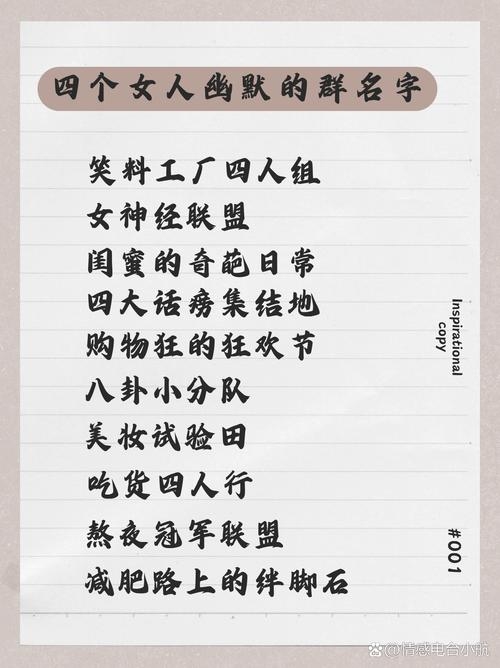 四个女人幽默的群名字
笑料工厂四人组
女神经联盟
闺蜜的奇葩日常
四大话痨集结地
购物狂的狂欢节
八卦小分队
美妆试验田
吃货四人行
熬夜冠军联盟
减肥路上的绊脚石
Inspirational
copy
#001
@情感电台小航